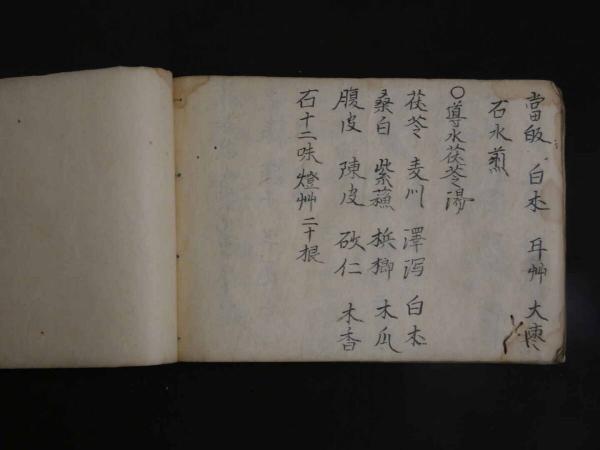 當皈 白朮 耳艸 大棗
石水煎
○導水茯苓湯
茯苓 麦川 澤泻 白朮
桑白 紫蘓 梹榔 木瓜
腹皮 陳皮 砂仁 木香
石十二味燈艸二十根